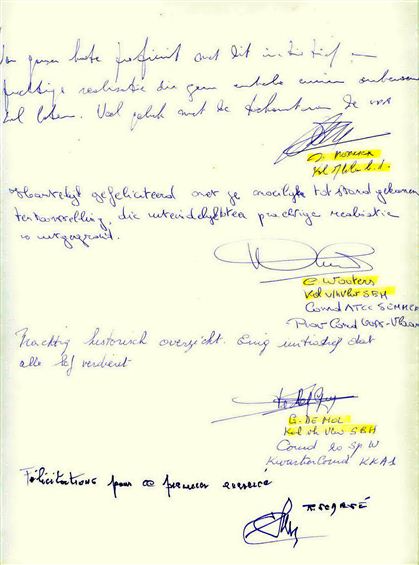 Van ganser harte proficiat met dit initiatief –
prachtige realisatie die geen enkele
zal laten. Veel geluk met de
J.
Kol v/h Vlw b.d.
Hartelijk gefeliciteerd met je moeilijk tot stand gekomen
tentoonstelling, die uiteindelijk een prachtige realisatie
is uitgegroeid.
C Wouters
Kol v/h Vlw SBH
Comd ATCC SEMMER
Prov Comd Oost-Vlaan
Prachtig historisch overzicht. Enig initiatief dat
alle lof verdient
G. DE MOL
Kol v/h Vlw SBH
Comd
KwartierComd KKAS
Félicitations pour ce premier exercice